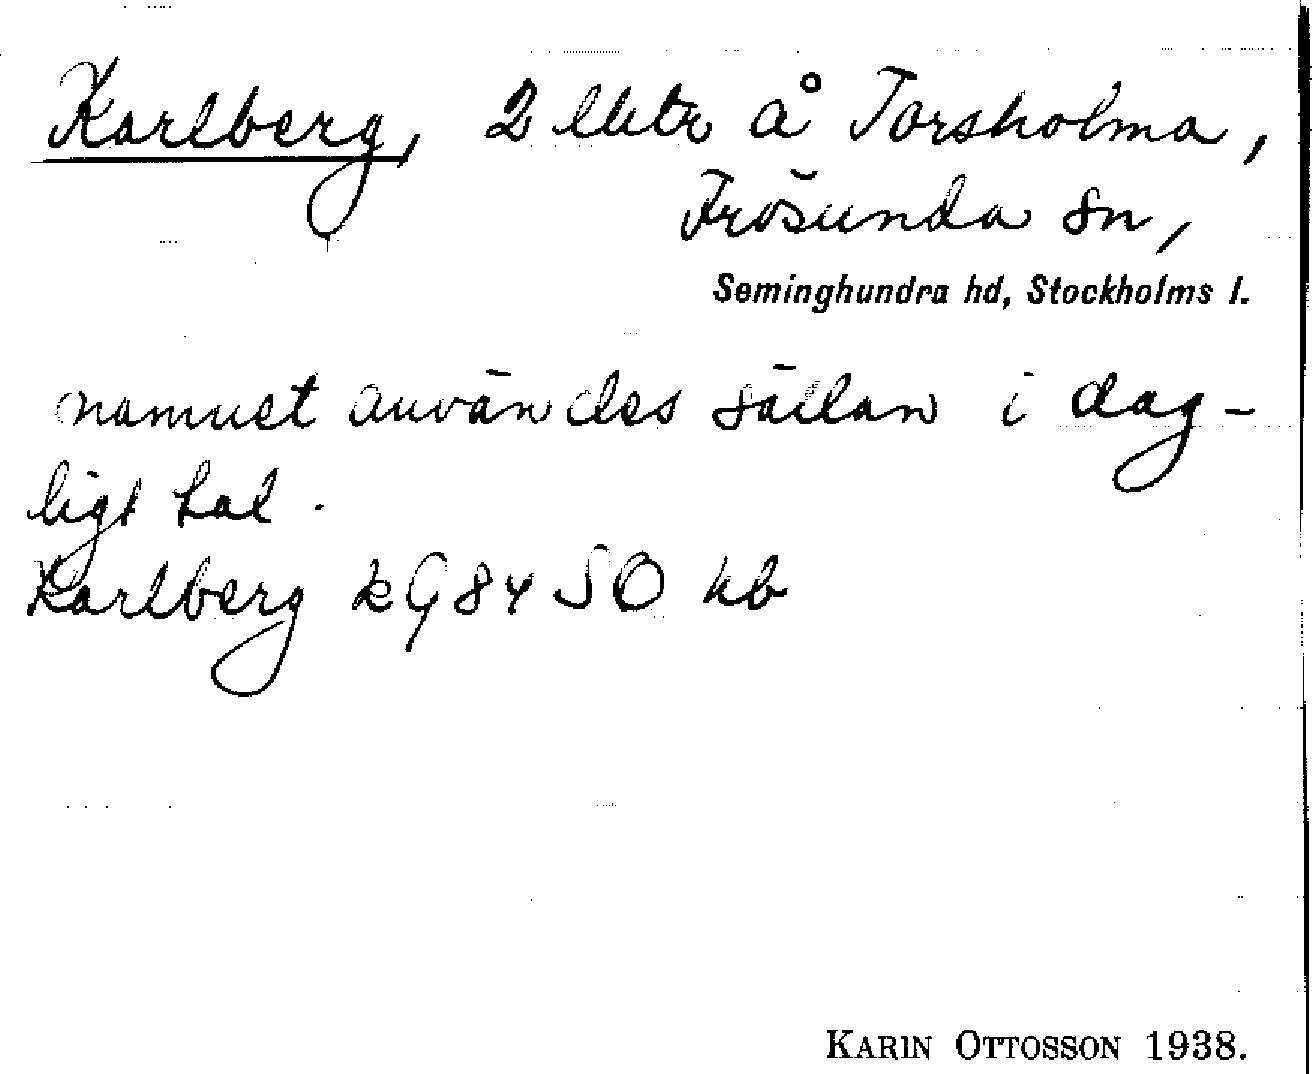 Karlberg, 2 lhtr å Torsholma,
Frösunda sn,
Seminghundra hd, Stockholms l.
namnet användes sällan i dag-
ligt tal.
Karlberg kG 84 SO hb
KARIN OTTOSSON 1938.